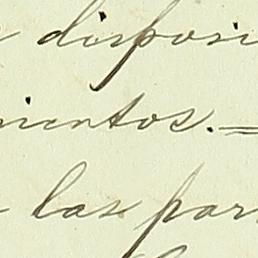 disposi
mientos.=
las par